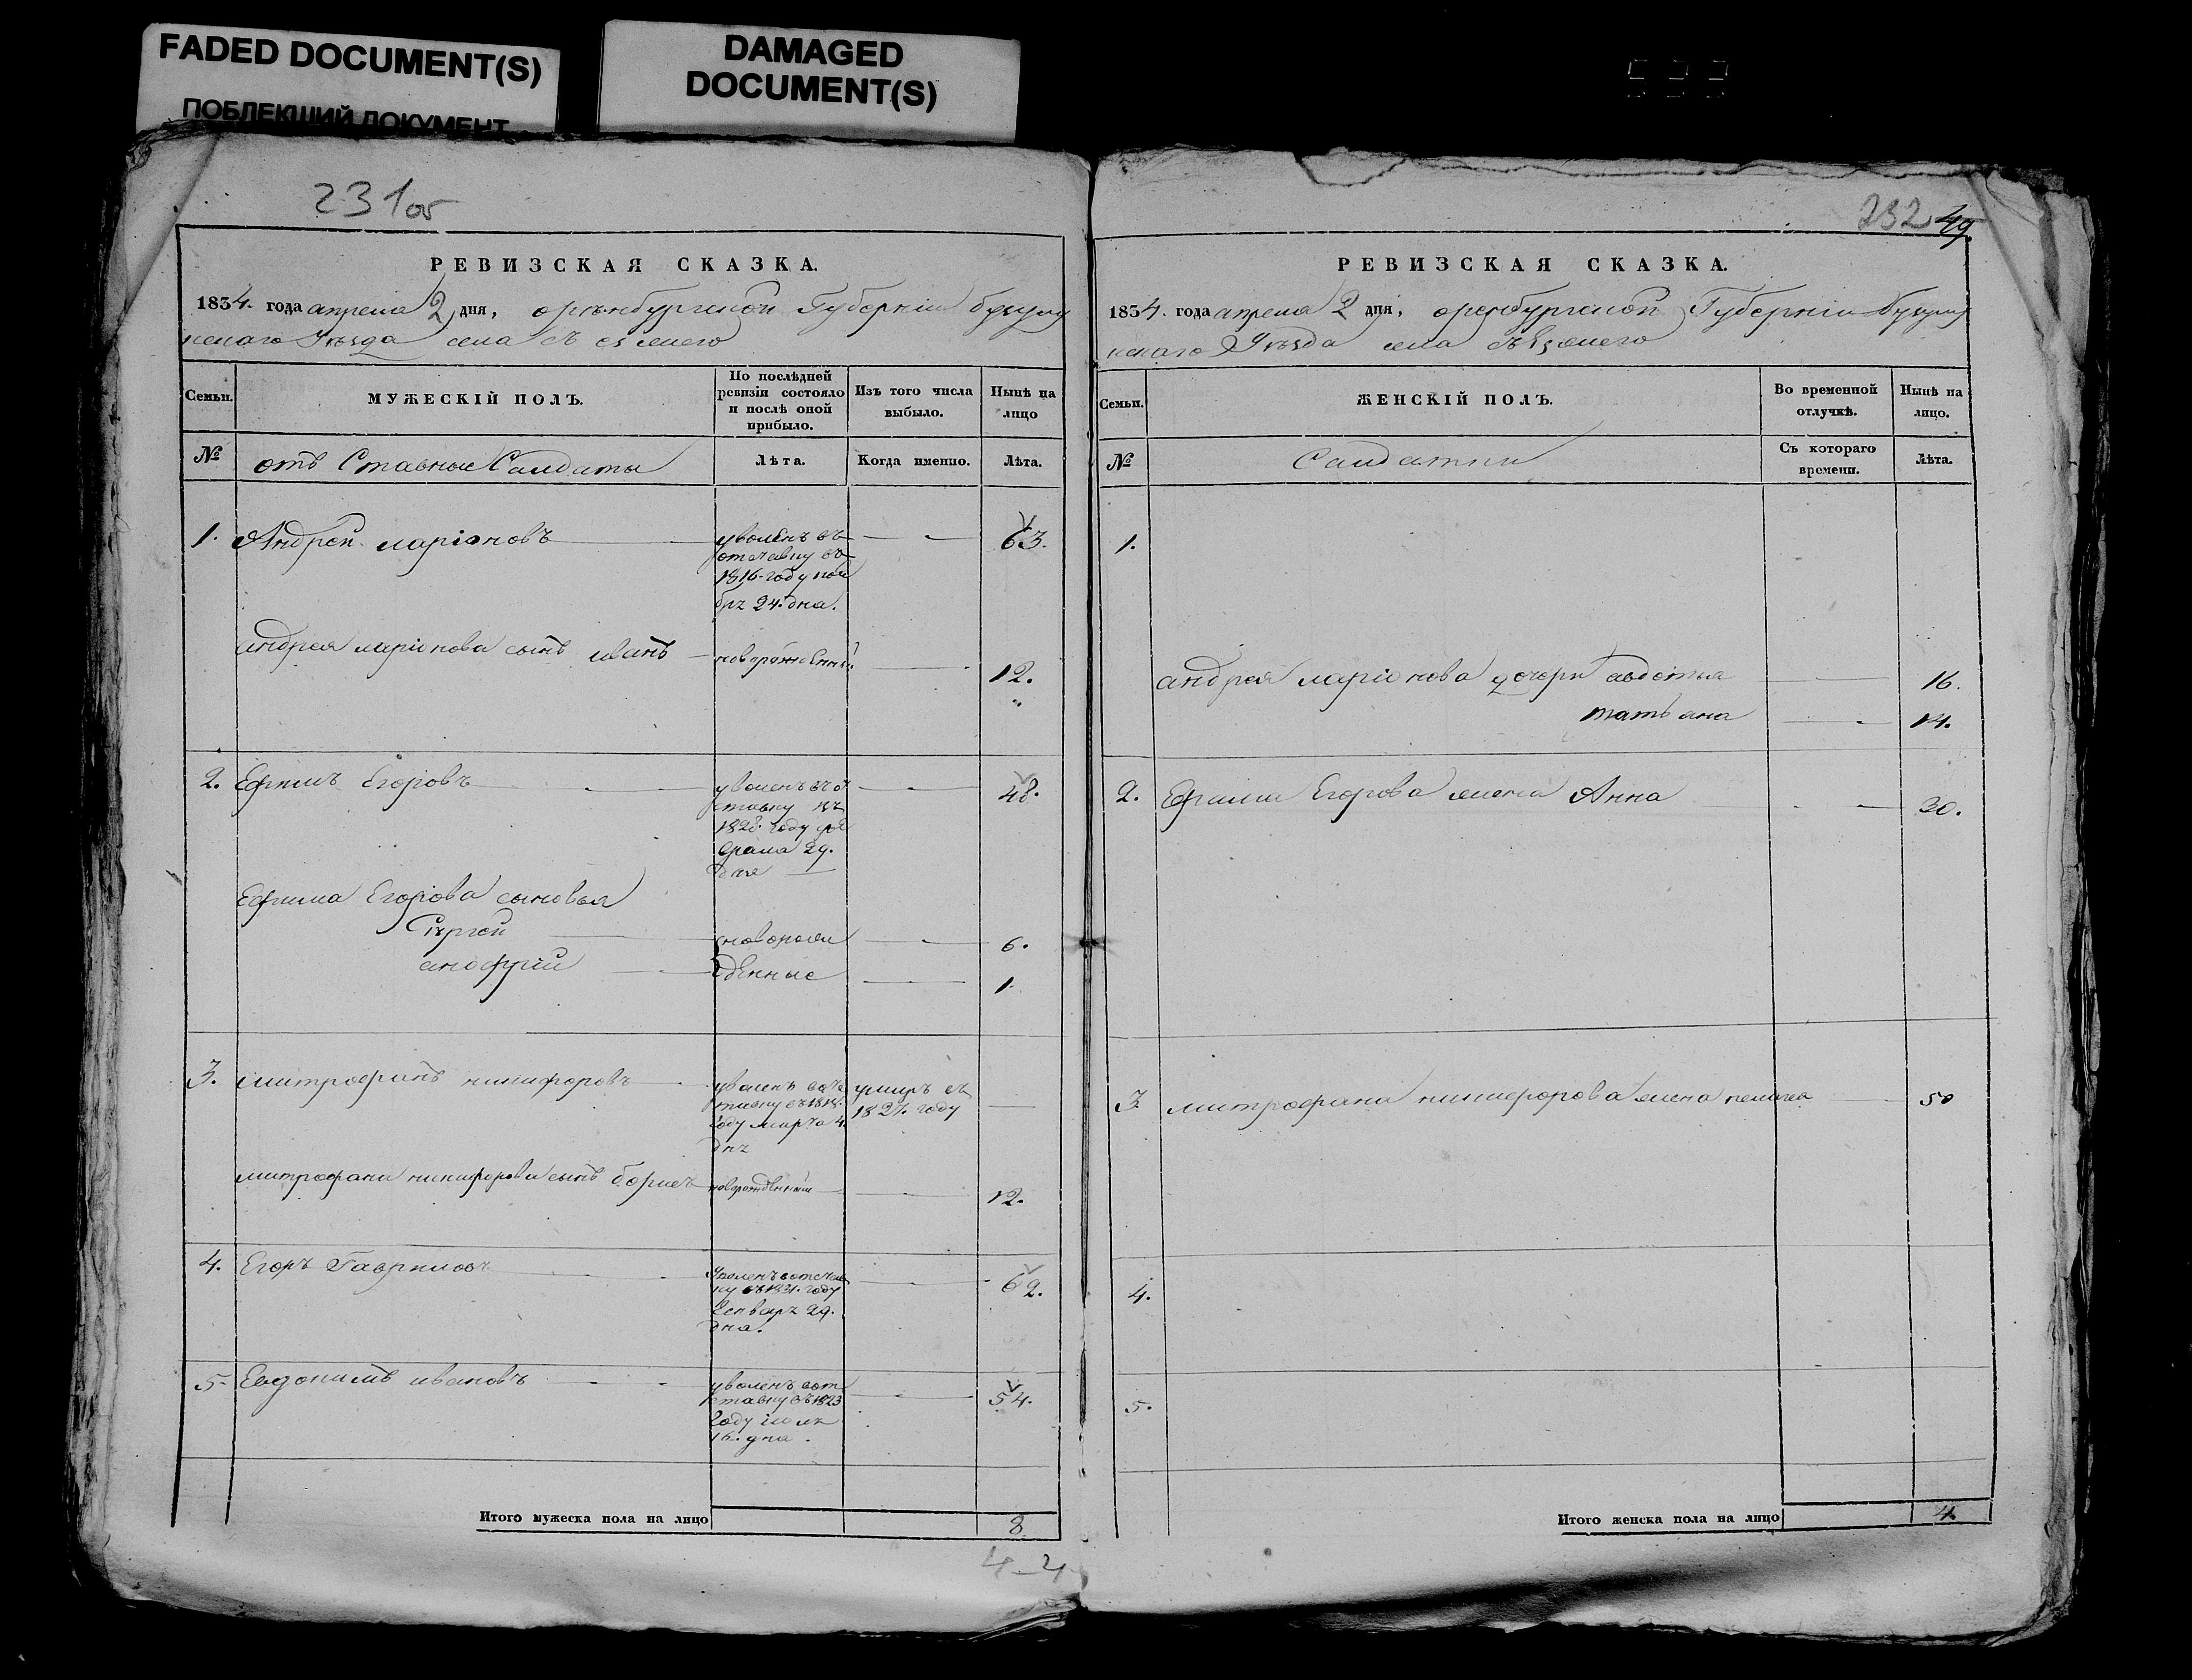 FADED DOCUMENT(S)
ПОБЛЕКШИЙ ДОКУМЕНТ
DAMAGED
DOCUMENT(S)
231об
РЕВИЗСКАЯ СКАЗКА.
1834. года апреля 2 дня, оренбургской Губернiи бузулу
кскаго Уѣзда села съ
МУЖЕСКIЙ ПОЛЪ.
Семьи.
По послѣдней
ревизiи состояло
и послѣ оной
прибыло.
Изъ того числа
выбыло.
Нынѣ на
лицо
№
отъ Ставные Салдаты
Лѣта.
Когда именно.
Лѣта.
1. Андрей ларiоновъ
уволенъ въ
отставку въ
1816. году ноя
бря 24. дня.
63.
андрея ларiонова сынъ иванъ
новорожденный
12.
2. Ефимъ Егоровъ
уволенъ въ о
ставку въ
1828. году фе
враля 29.
дня
48.
Ефима Егорова сыновья
Сергей
новорож
6.
анофрiй
денные
1.
3. митрофанъ никифоровъ
уволенъ во
ставку въ 1818.
году марта 4.
дня
умеръ въ
1827. году
митрофана никифорова сынъ борисъ
новорожденный
12.
4. Егоръ Гавриловъ
Уволенъ вотстав
ку въ 1831. году
Генваря 29.
дня.
62.
5. Евдокимъ ивановъ
уволенъ вот
ставку въ 1823
году iюля
16. дня.
54.
Итого мужеска пола на лицо
8.
4-4
232 49
РЕВИЗСКАЯ СКАЗКА.
1834. года апреля 2 дня, оренбургской Губернiи бузулу
кскаго Уѣзда села
Семьи.
ЖЕНСКIЙ ПОЛЪ.
Во временной
отлучкѣ.
Нынѣ на
лицо.
№
Салдатки
Съ котораго
времени.
Лѣта.
1.
андрея ларiонова дочери авдотья
16.
татьяна
14.
2. Ефима Егорова жена Анна
30.
3. митрофана никифорова жена пелагея
50
4.
5.
Итого женска пола на лицо
4